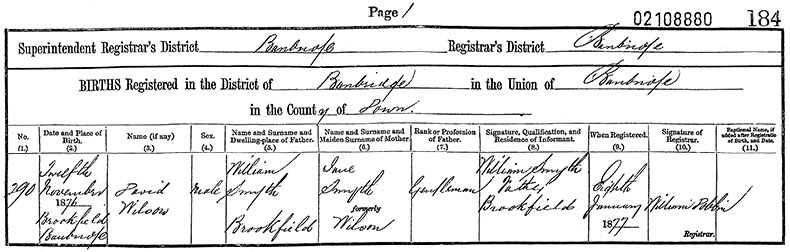 Page 1
02108880 184
Superintendent Registrar's District Banbridge Registrar's District Banbridge
BIRTHS Registered in the District of Banbridge in the Union of Banbridge
in the County of Down.
No. (1.) Date and Place of Birth, (2.) Name (if any) (3.) Sex. (4.) Name and Surname and Dwelling-place of Father. (5.) Name and Surname and Maiden Surname of Mother. (6.) Rank or Profession of Father. (7.) Signature, Qualification, and Residence of Informant. (8.) When Registered. (9.) Signature of Registrar. (10.) Baptismal Name, if added after Registration of Birth, and Date. (11.)
290
Twelfth
November
1876
Brookfield
Banbridge
David
Wilson
Male
William
Smyth
Brookfield
Jane
Smyth
formerly
Wilson
Gentleman
William Smyth
Father
Brookfield
Eighth
January
1877
William
Registrar.